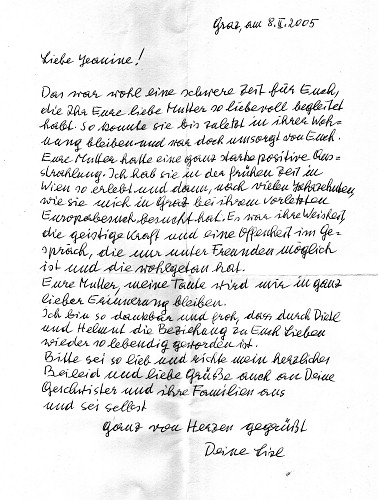 Graz, am 8.II.2005
Liebe Jeanine!
Das war wohl eine schwere Zeit für Euch,
die Ihr Eure liebe Mutter so liebevoll begleitet
habt. So konnte sie bis zuletzt in ihrer Woh-
nung bleiben und war doch umsorgt von Euch.
Eure Mutter hatte eine ganz starke positive Aus-
strahlung. Ich hab sie in der frühen Zeit in
Wien so erlebt und dann, nach vielen Jahrzehnten,
wie sie mich in Graz bei ihrem vorletzten
Europabesuch besucht hat. Es war ihre Weisheit
die geistige Kraft und eine Offenheit im Ge-
spräch, die nur unter Freunden möglich
ist und die wohlgetan hat.
Eure Mutter, meine Tante wird mir in ganz
lieber Erinnerung bleiben.
Ich bin so dankbar und froh, dass durch
und Helmut die Beziehung zu Euch Lieben
wieder so lebendig geworden ist.
Bitte sei so lieb und richte mein herzliches
Beileid und liebe Grüße auch an Deine
Geschwister und ihre Familien aus
und sei selbst
ganz von Herzen gegrüßt
Deine Lisl